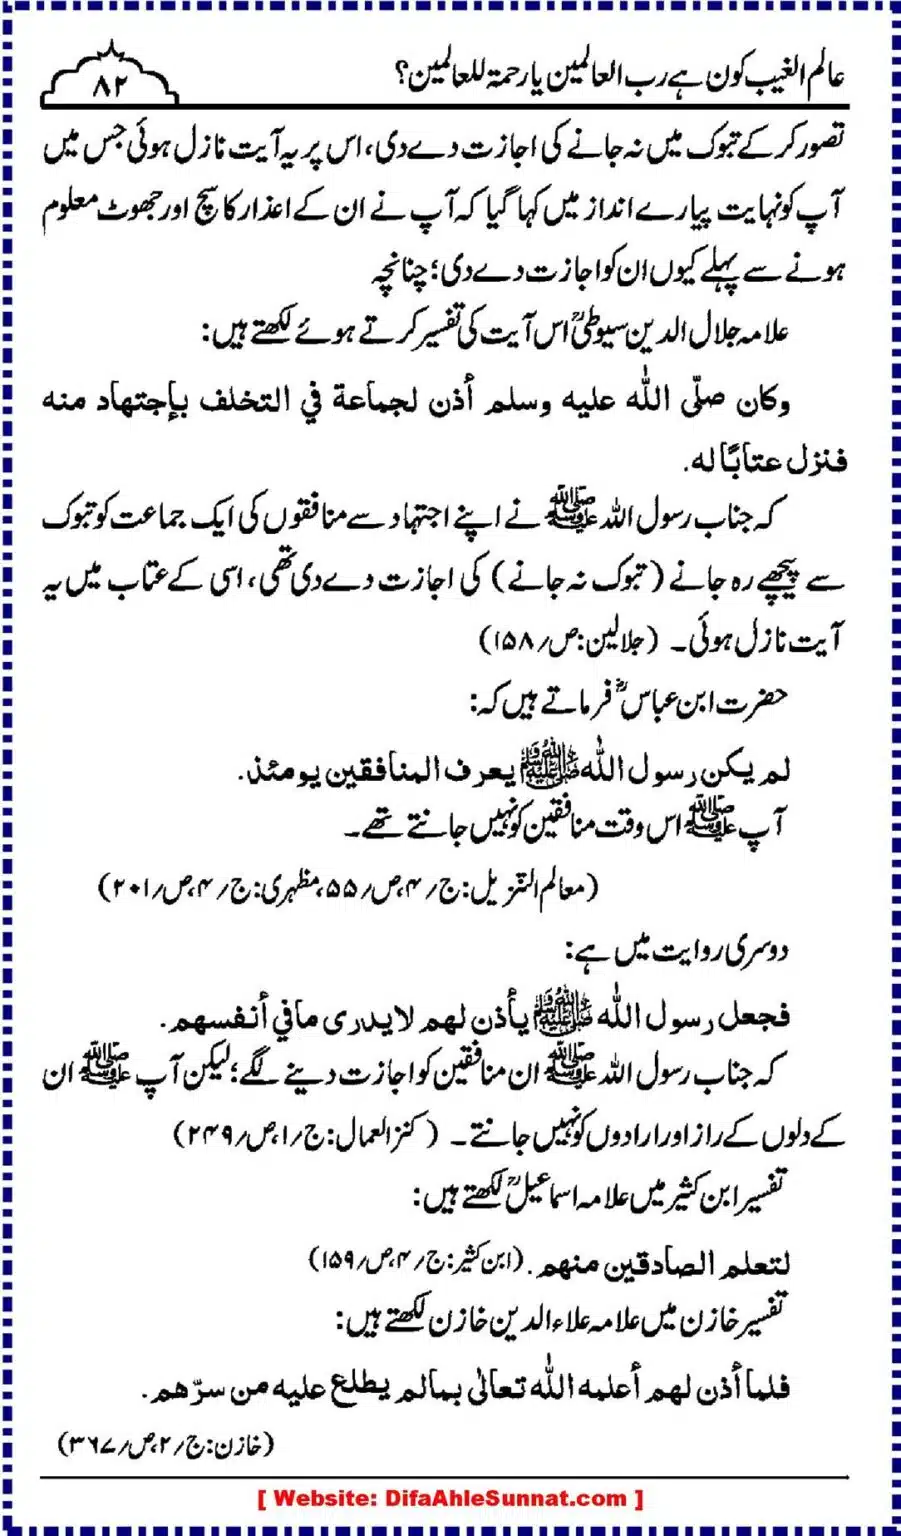 عالم الغیب کون ہے رب العالمین یا رحمۃ للعالمین؟
۸۲
تصور کر کے تبوک میں نہ جانے کی اجازت دے دی، اس پر یہ آیت نازل ہوئی جس میں
آپ کو نہایت پیارے انداز میں کہا گیا کہ آپ نے ان کے اعذار کا سچ اور جھوٹ معلوم
ہونے سے پہلے کیوں ان کو اجازت دے دی؛ چنانچہ
علامہ جلال الدین سیوطیؒ اس آیت کی تفسیر کرتے ہوئے لکھتے ہیں:
وكان صلّى الله عليه وسلم أذن لجماعة في التخلف بإجتهاد منه
فنزل عتابًا له.
کہ جناب رسول اللہ ﷺ نے اپنے اجتہاد سے منافقوں کی ایک جماعت کو تبوک
سے پیچھے رہ جانے (تبوک نہ جانے) کی اجازت دے دی تھی، اسی کے عتاب میں یہ
آیت نازل ہوئی۔ (جلالین:ص؍۱۵۸)
حضرت ابن عباسؓ فرماتے ہیں کہ:
لم يكن رسول الله ﷺ يعرف المنافقين يومئذ.
آپ ﷺ اس وقت منافقین کو نہیں جانتے تھے۔
(معالم التنزیل:ج؍۴،ص؍۵۵،مظہری:ج؍۴،ص؍۲۰۱)
دوسری روایت میں ہے:
فجعل رسول الله ﷺ يأذن لهم لا يدرى ما في أنفسهم.
کہ جناب رسول اللہ ﷺ ان منافقین کو اجازت دینے لگے؛ لیکن آپ ﷺ ان
کے دلوں کے راز اور ارادوں کو نہیں جانتے۔ (کنز العمال:ج؍۱،ص؍۲۴۹)
تفسیر ابن کثیر میں علامہ اسماعیلؒ لکھتے ہیں:
لتعلم الصادقين منهم. (ابن کثیر:ج؍۴،ص؍۱۵۹)
تفسیر خازن میں علامہ علاء الدین خازن لکھتے ہیں:
فلما أذن لهم أعلمه الله تعالىٰ بما لم يطلع عليه من سرّهم.
(خازن:ج؍۲،ص؍۳۶۷)
[ Website: DifaAhleSunnat.com ]